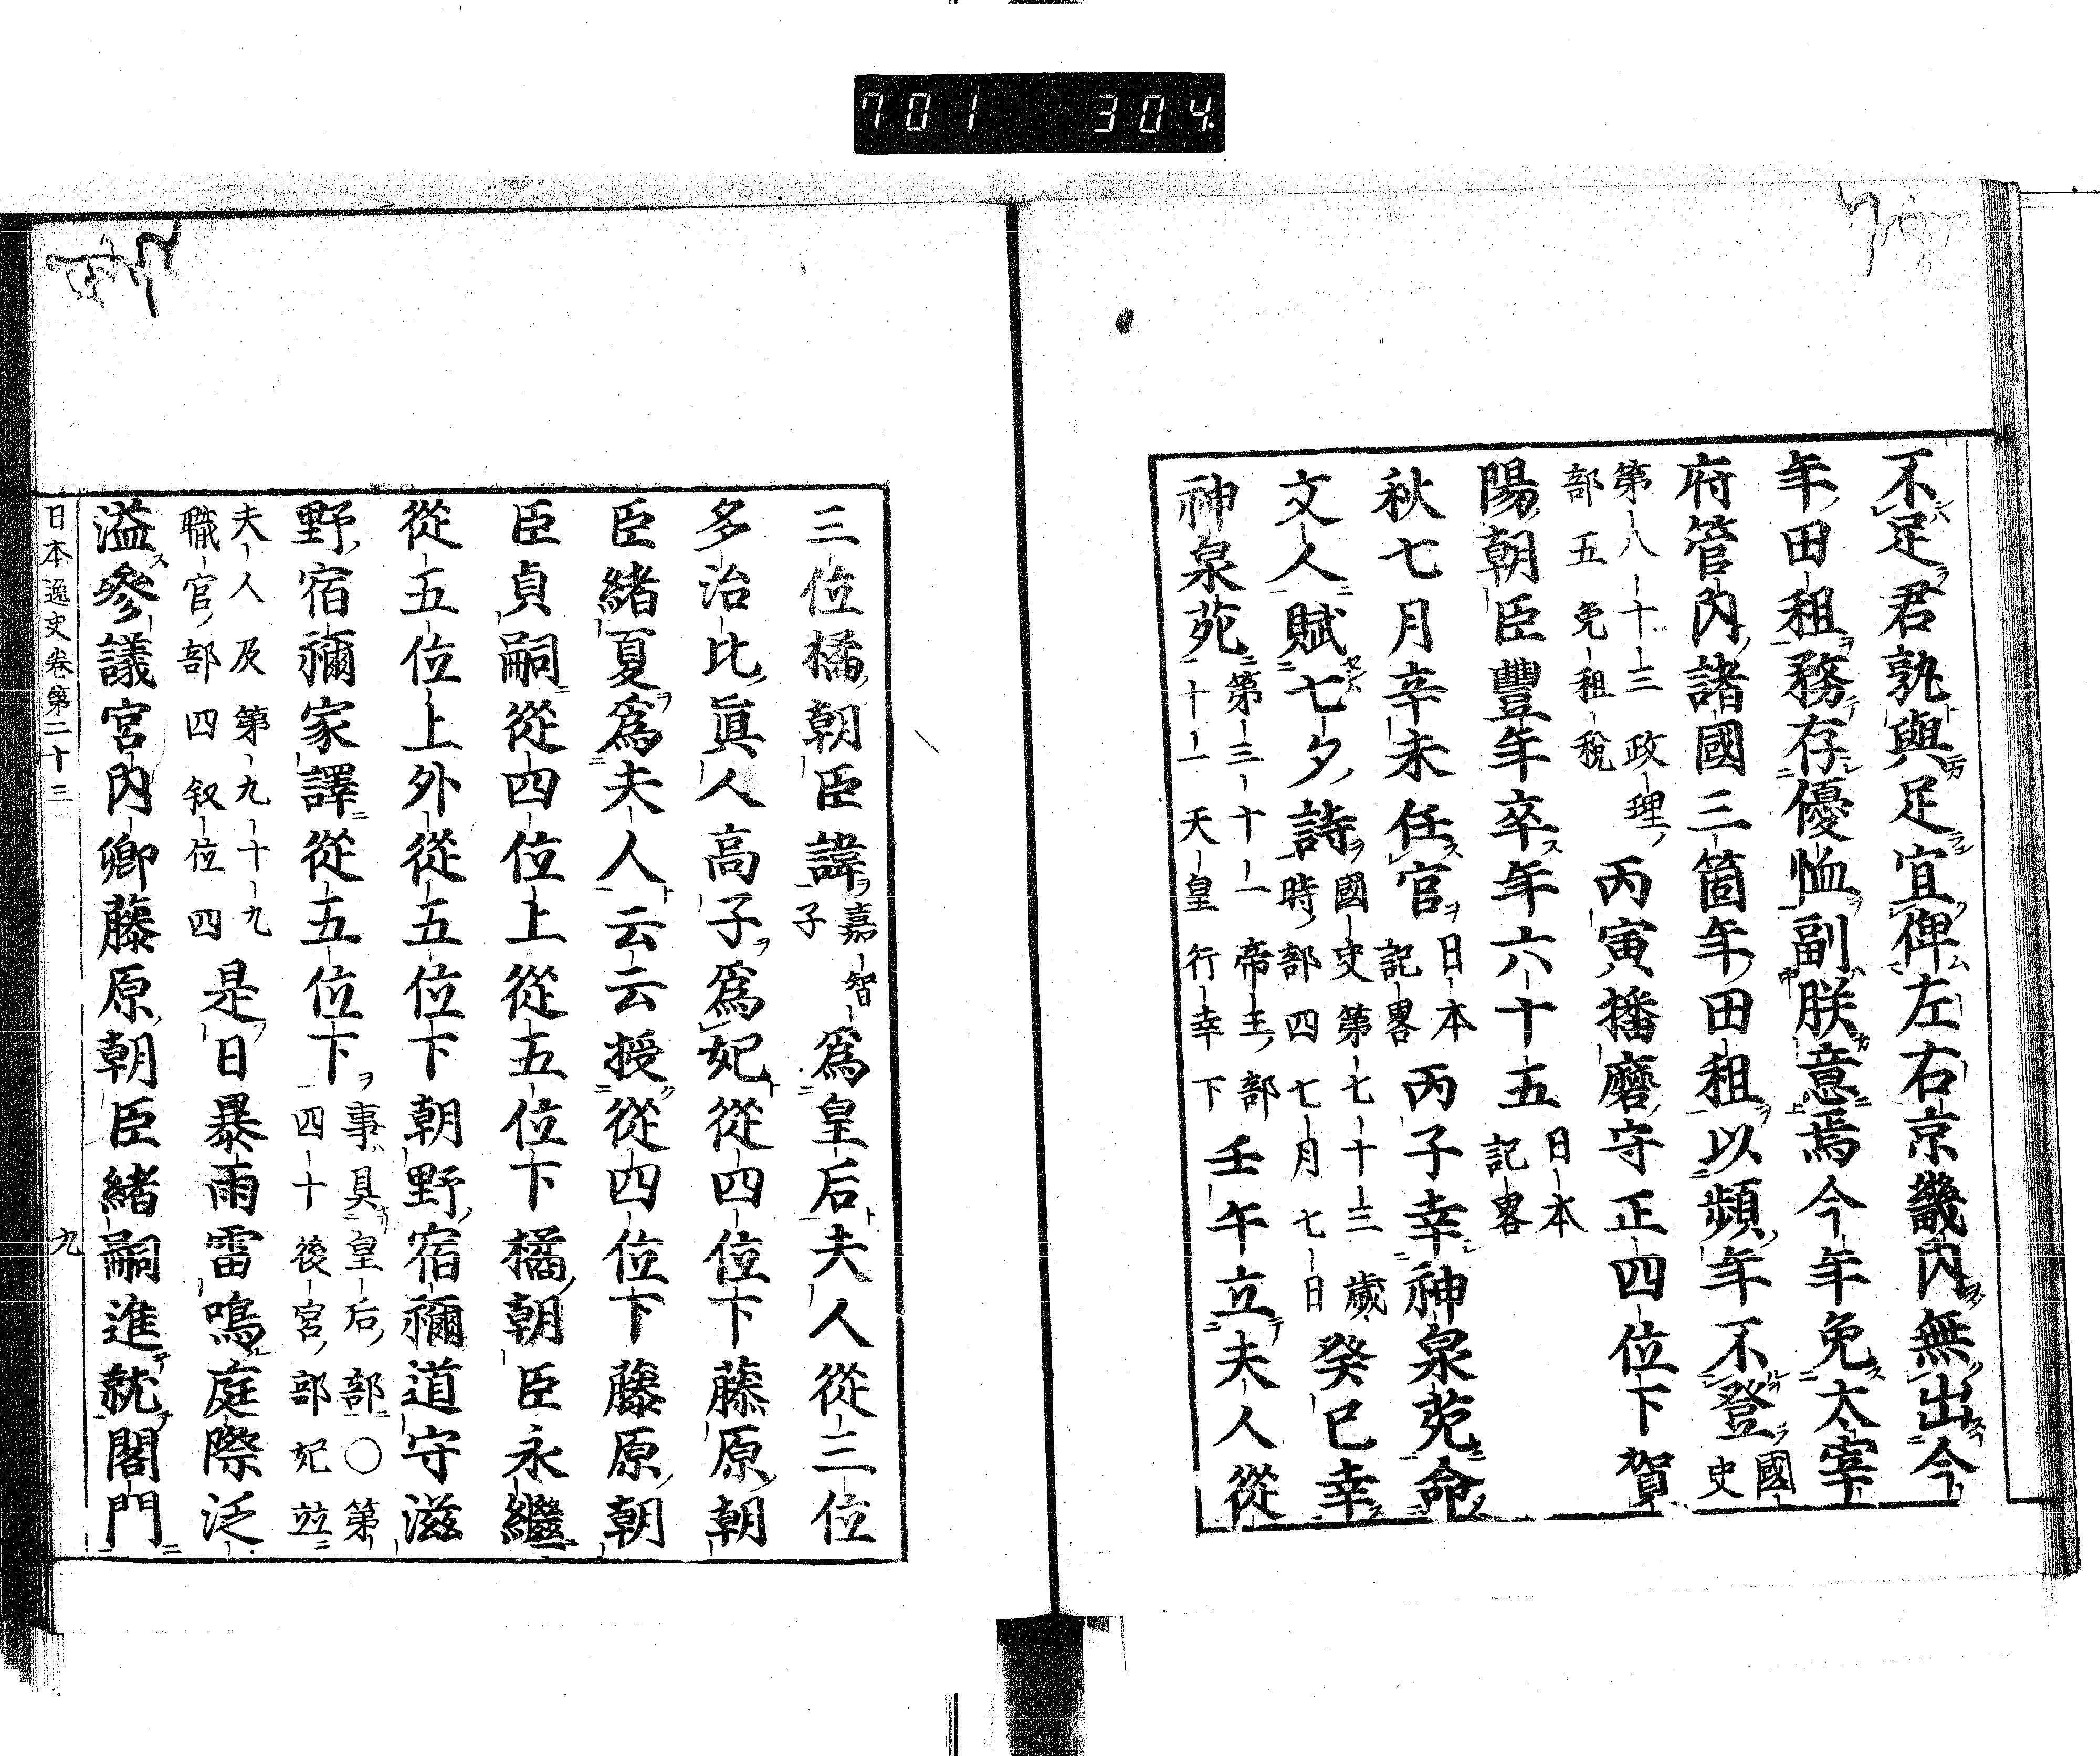 701 304
不足君孰與足宜俾左右京畿内無出今
年田租務存優恤副朕意焉今年免太宰
府管内諸國三箇年田租以頻年不登國史
第八十三政理部五免租税丙寅播磨守正四位下賀
陽朝臣豐年卒年六十五日本記畧
秋七月辛未任官日本記畧丙子幸神泉苑命
文人賦七夕詩國史第七十三歲時部四七月七日癸巳幸
神泉苑第三十一帝王部十一天皇行幸下壬午立夫人從
三位橘朝臣諱嘉智子爲皇后夫人從三位
多治比眞人高子爲妃從四位下藤原朝
臣緒夏爲夫人云云授從四位下藤原朝
臣貞嗣從四位上從五位下橘朝臣永繼
從五位上外從五位下朝野宿禰道守滋
野宿禰家譯從五位下事具皇后部〇第四十後宮部妃並
夫人及第九十九職官部四叙位四是日暴雨雷鳴庭際泛
溢參議宮内卿藤原朝臣緒嗣進就閤門
日本逸史卷第二十三 九